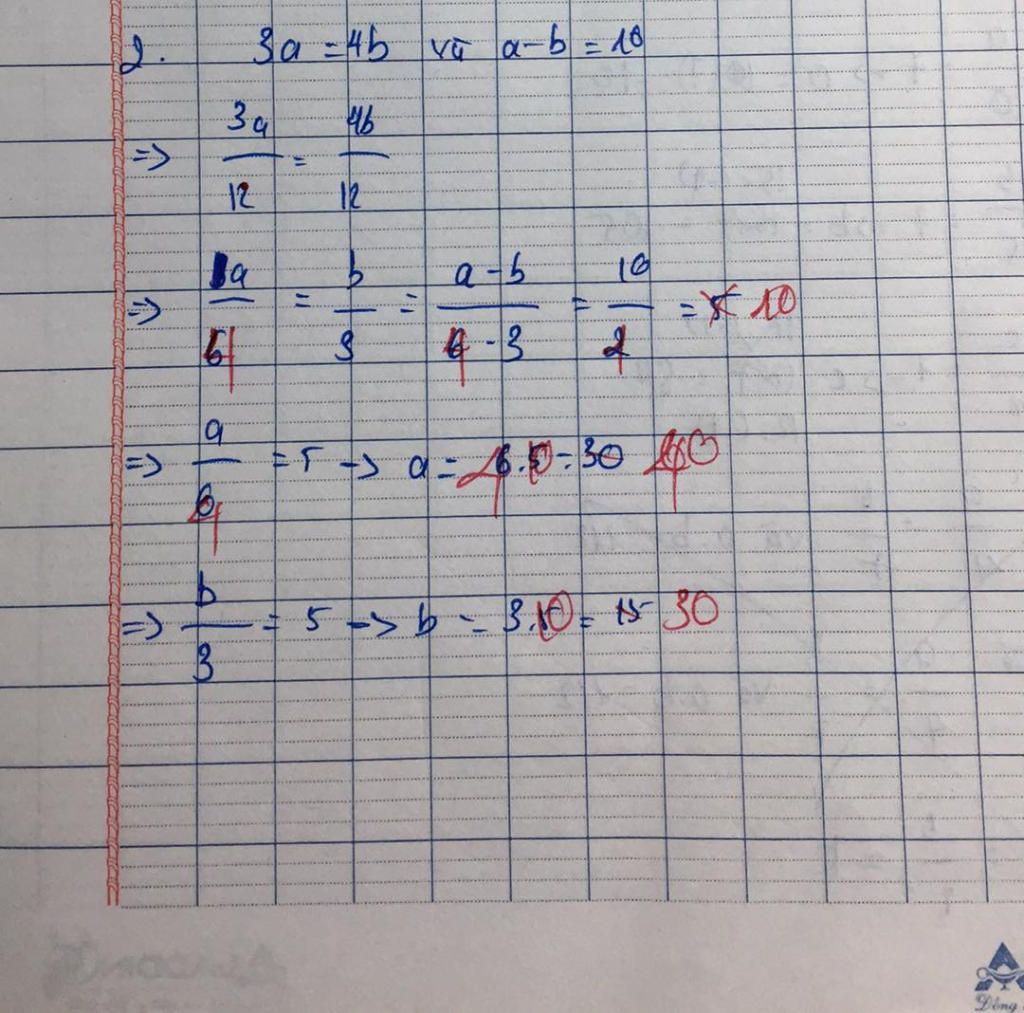 2. 3a = 4b và a-b = 10
=> 3a/12 = 4b/12
=> a/4 = b/3 = a-b/4-3 = 10/1 = 5 10
=> a/4 = 5 -> a = 4.10 = 30 40
=> b/3 = 5 -> b = 3.10 = 15 30